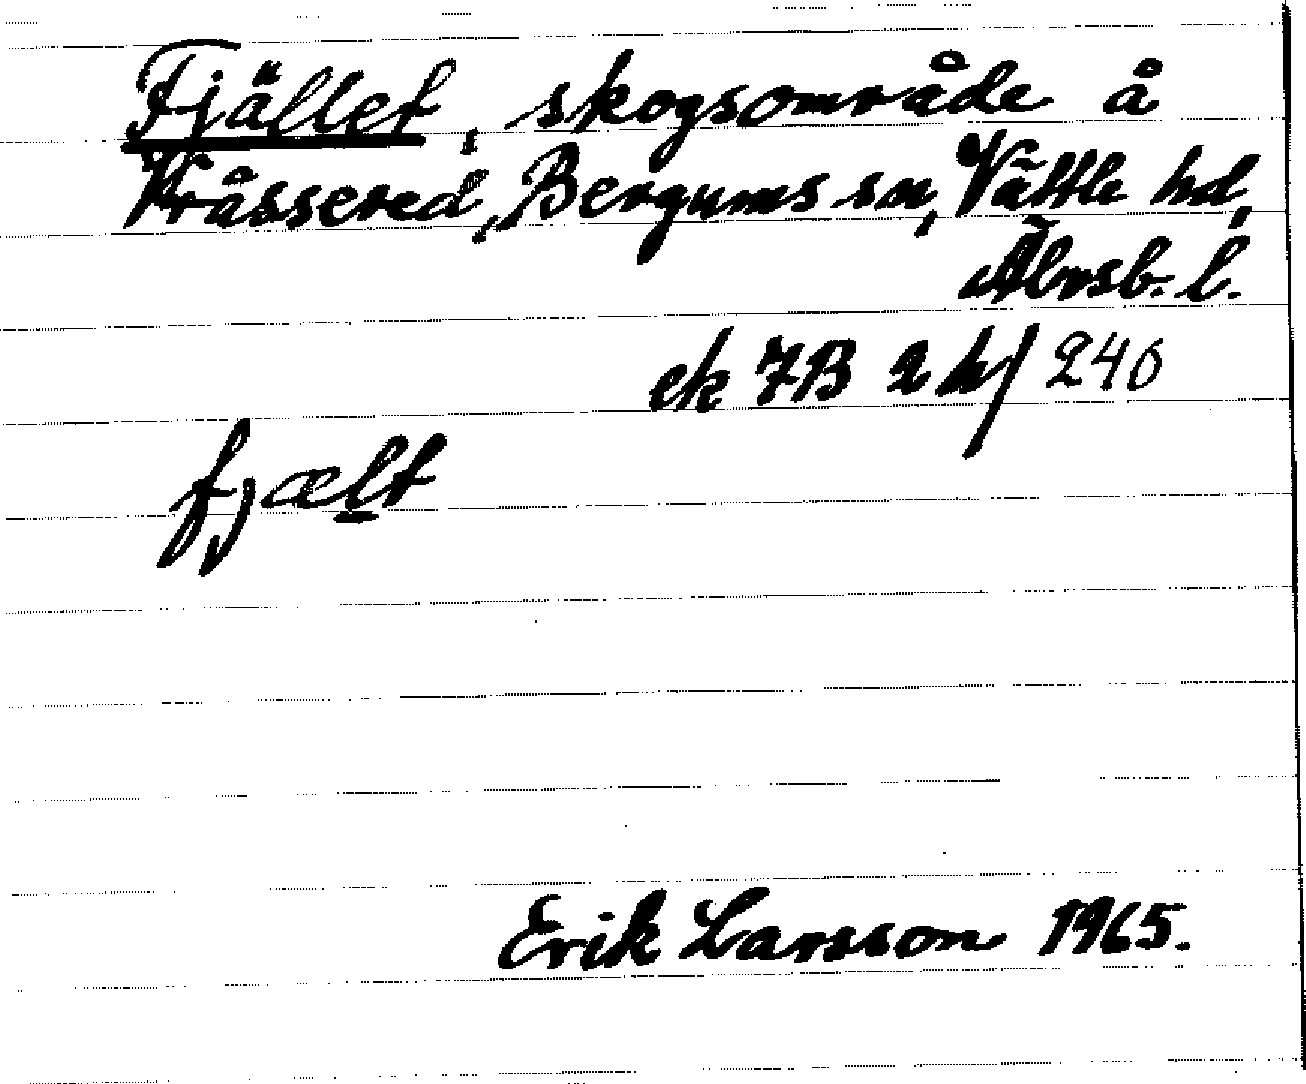 Fjället, skogsområde å
Kråssered, Bergums sn, Vättle hd,
Älvsb. l.
ek 7B 2h/240
fjælt
Erik Larsson 1965.